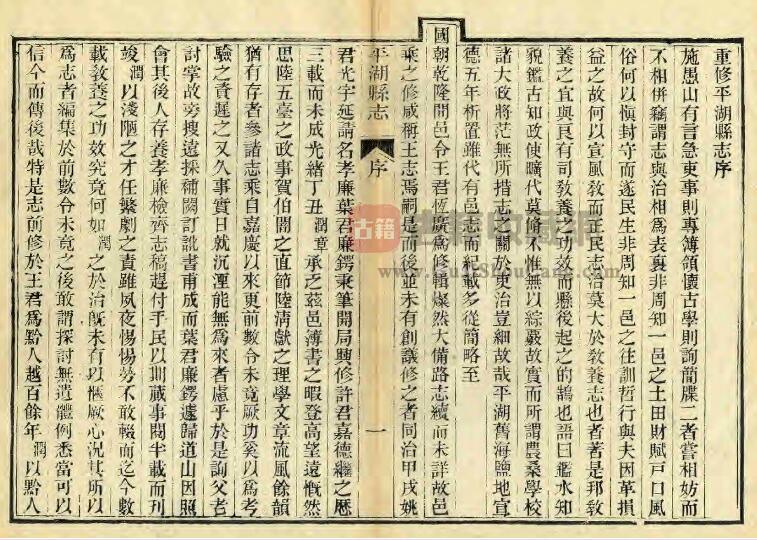 重修平湖縣志序
施愚山有言急吏事則專簿領懷古學則詢簡牒二者嘗相妨而
不相併竊謂志與治相為表裏非周知一邑之土田財賦戶口風
俗何以慎封守而遂民生非周知一邑之往訓哲行與夫因革損
益之故何以宣風敎而正民志治莫大於敎養志也者著是邦敎
養之宜與良有司敎養之功效而懸後起之的鵠也語曰鑑水知
貌鑑古知政使曠代莫脩不惟無以綜覈故實而所謂農桑學校
諸大政將茫無所措志之關於吏治豈細故哉平湖舊海鹽地宣
德五年析置雖代有邑志而紀載多從簡略至
國朝乾隆間邑令王君恆廣爲修輯燦然大備路志續而未詳故邑
乘之修咸稱王志焉嗣是而後並未有創議修之者同治甲戌姚
平湖縣志 序 一
君光宇延請名孝廉葉君廉鍔秉筆開局興修許君嘉德繼之歷
三載而未成光緒丁丑潤章承乏茲邑簿書之暇登高望遠慨然
思陸五臺之政事賀伯闇之直節陸淸獻之理學文章流風餘韻
猶有存者參諸志乘自嘉慶以來更前數令未竟厥功奚以爲考
驗之責遲之又久事實日就沉湮能無爲來者慮乎於是詢父老
討掌故旁搜遠採補闕訂訛書甫成而葉君廉鍔遽歸道山因照
會其後人存養孝廉檢齊志稿趕付手民以期蕆事閱半載而刊
竣潤以淺陋之才任繁劇之責雖夙夜惕惕勞不敢輟而迄今數
載敎養之功效究竟何如潤之於治旣未有以愜厥心況其所以
爲志者編集於前數令未竟之後敢謂探討無遺體例悉當可以
信今而傳後哉特是志前修於王君爲黔人越百餘年潤以黔人
古籍